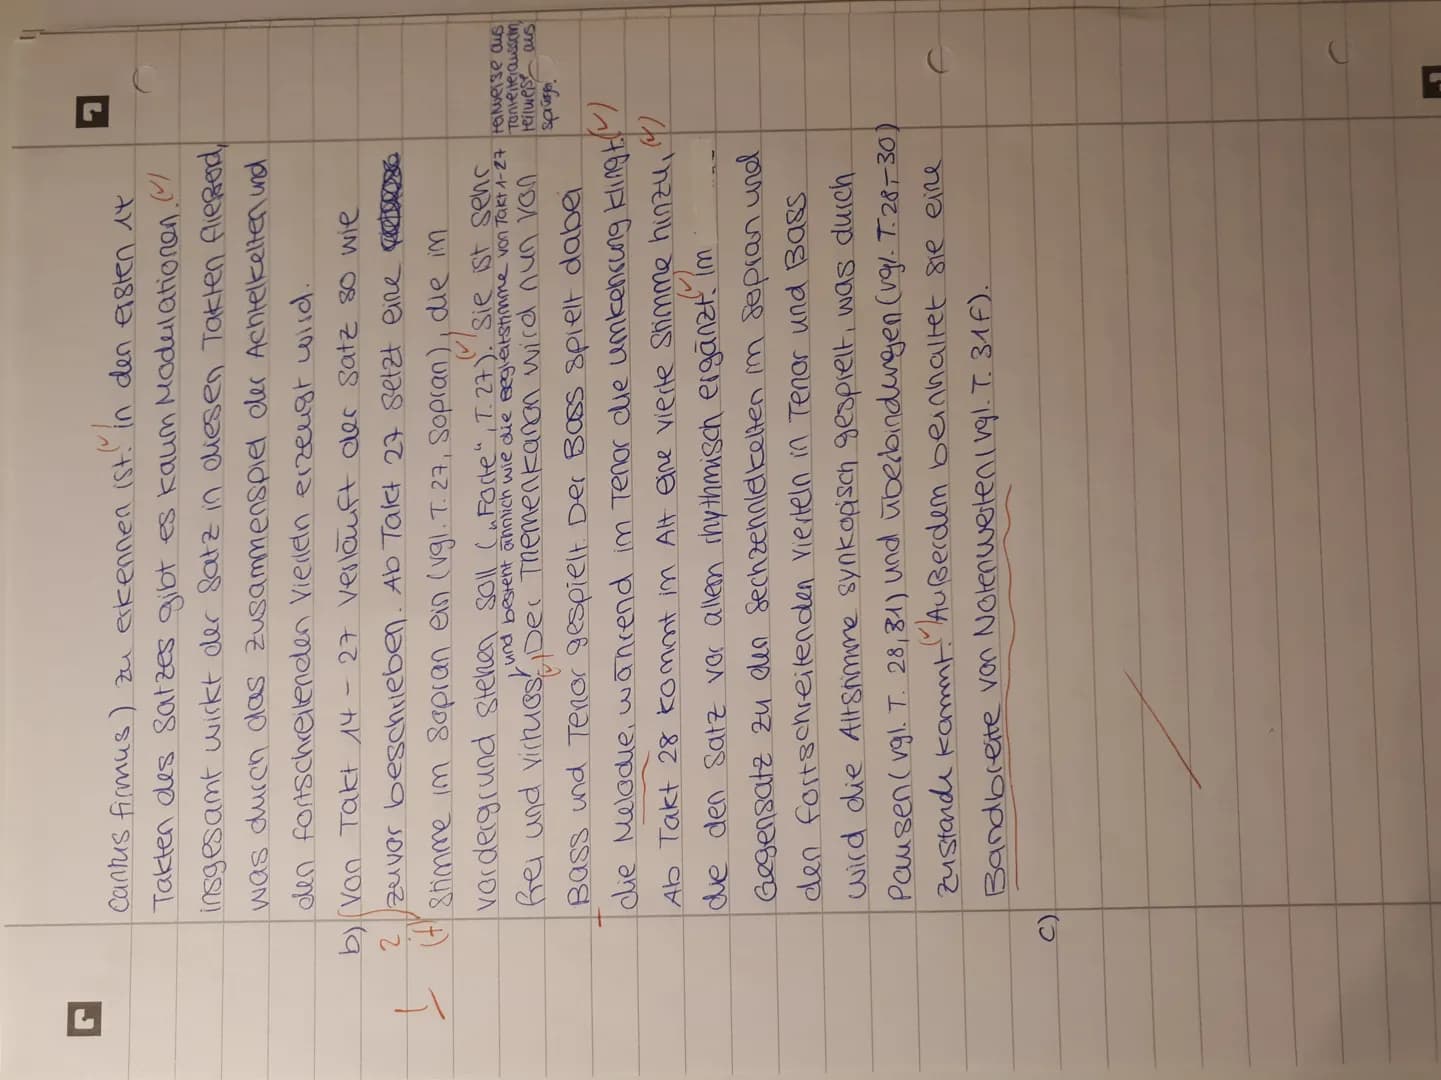 cantus firmus) zu erkennen ist. (✓) In den ersten 14
Takten des Satzes gibt es kaum Modulationen. (✓)
Insgesamt wirkt der Satz in diesen Takten fließend,
was durch das Zusammenspiel der Achtelketten und
den fortschreitenden Vierteln erzeugt wird.
b) Von Takt 14 - 27 verläuft der Satz so wie
2
zuvor beschrieben. Ab Takt 27 setzt eine
Stimme im Sopran ein (vgl. T. 27, Sopran), die im
(✓)
Vordergrund stehen soll („Forte", T. 27). Sie ist sehr
und besteht ähnlich wie die Begleitstimme von Takt 1-27
teilweise aus
Tonleiterauszügen,
teilweise aus
Sprüngen.
frei und virtuos. (✓) Der Themenkanon wird nun von
Bass und Tenor gespielt. Der Bass spielt dabei
die Melodie, während im Tenor die Umkehrung klingt. (✓)
Ab Takt 28 kommt im Alt eine vierte Stimme hinzu, (✓)
die den Satz vor allem rhythmisch ergänzt. (✓) Im
Gegensatz zu den Sechzehntelketten im Sopran und
den fortschreitenden Vierteln in Tenor und Bass
wird die Altstimme synkopisch gespielt, was durch
Pausen (vgl. T. 28, 31) und Überbindungen (vgl. T. 28,-30)
zustande kommt. (✓) Außerdem beinhaltet sie eine
Bandbreite von Notenwerten (vgl. T. 31f).
c)